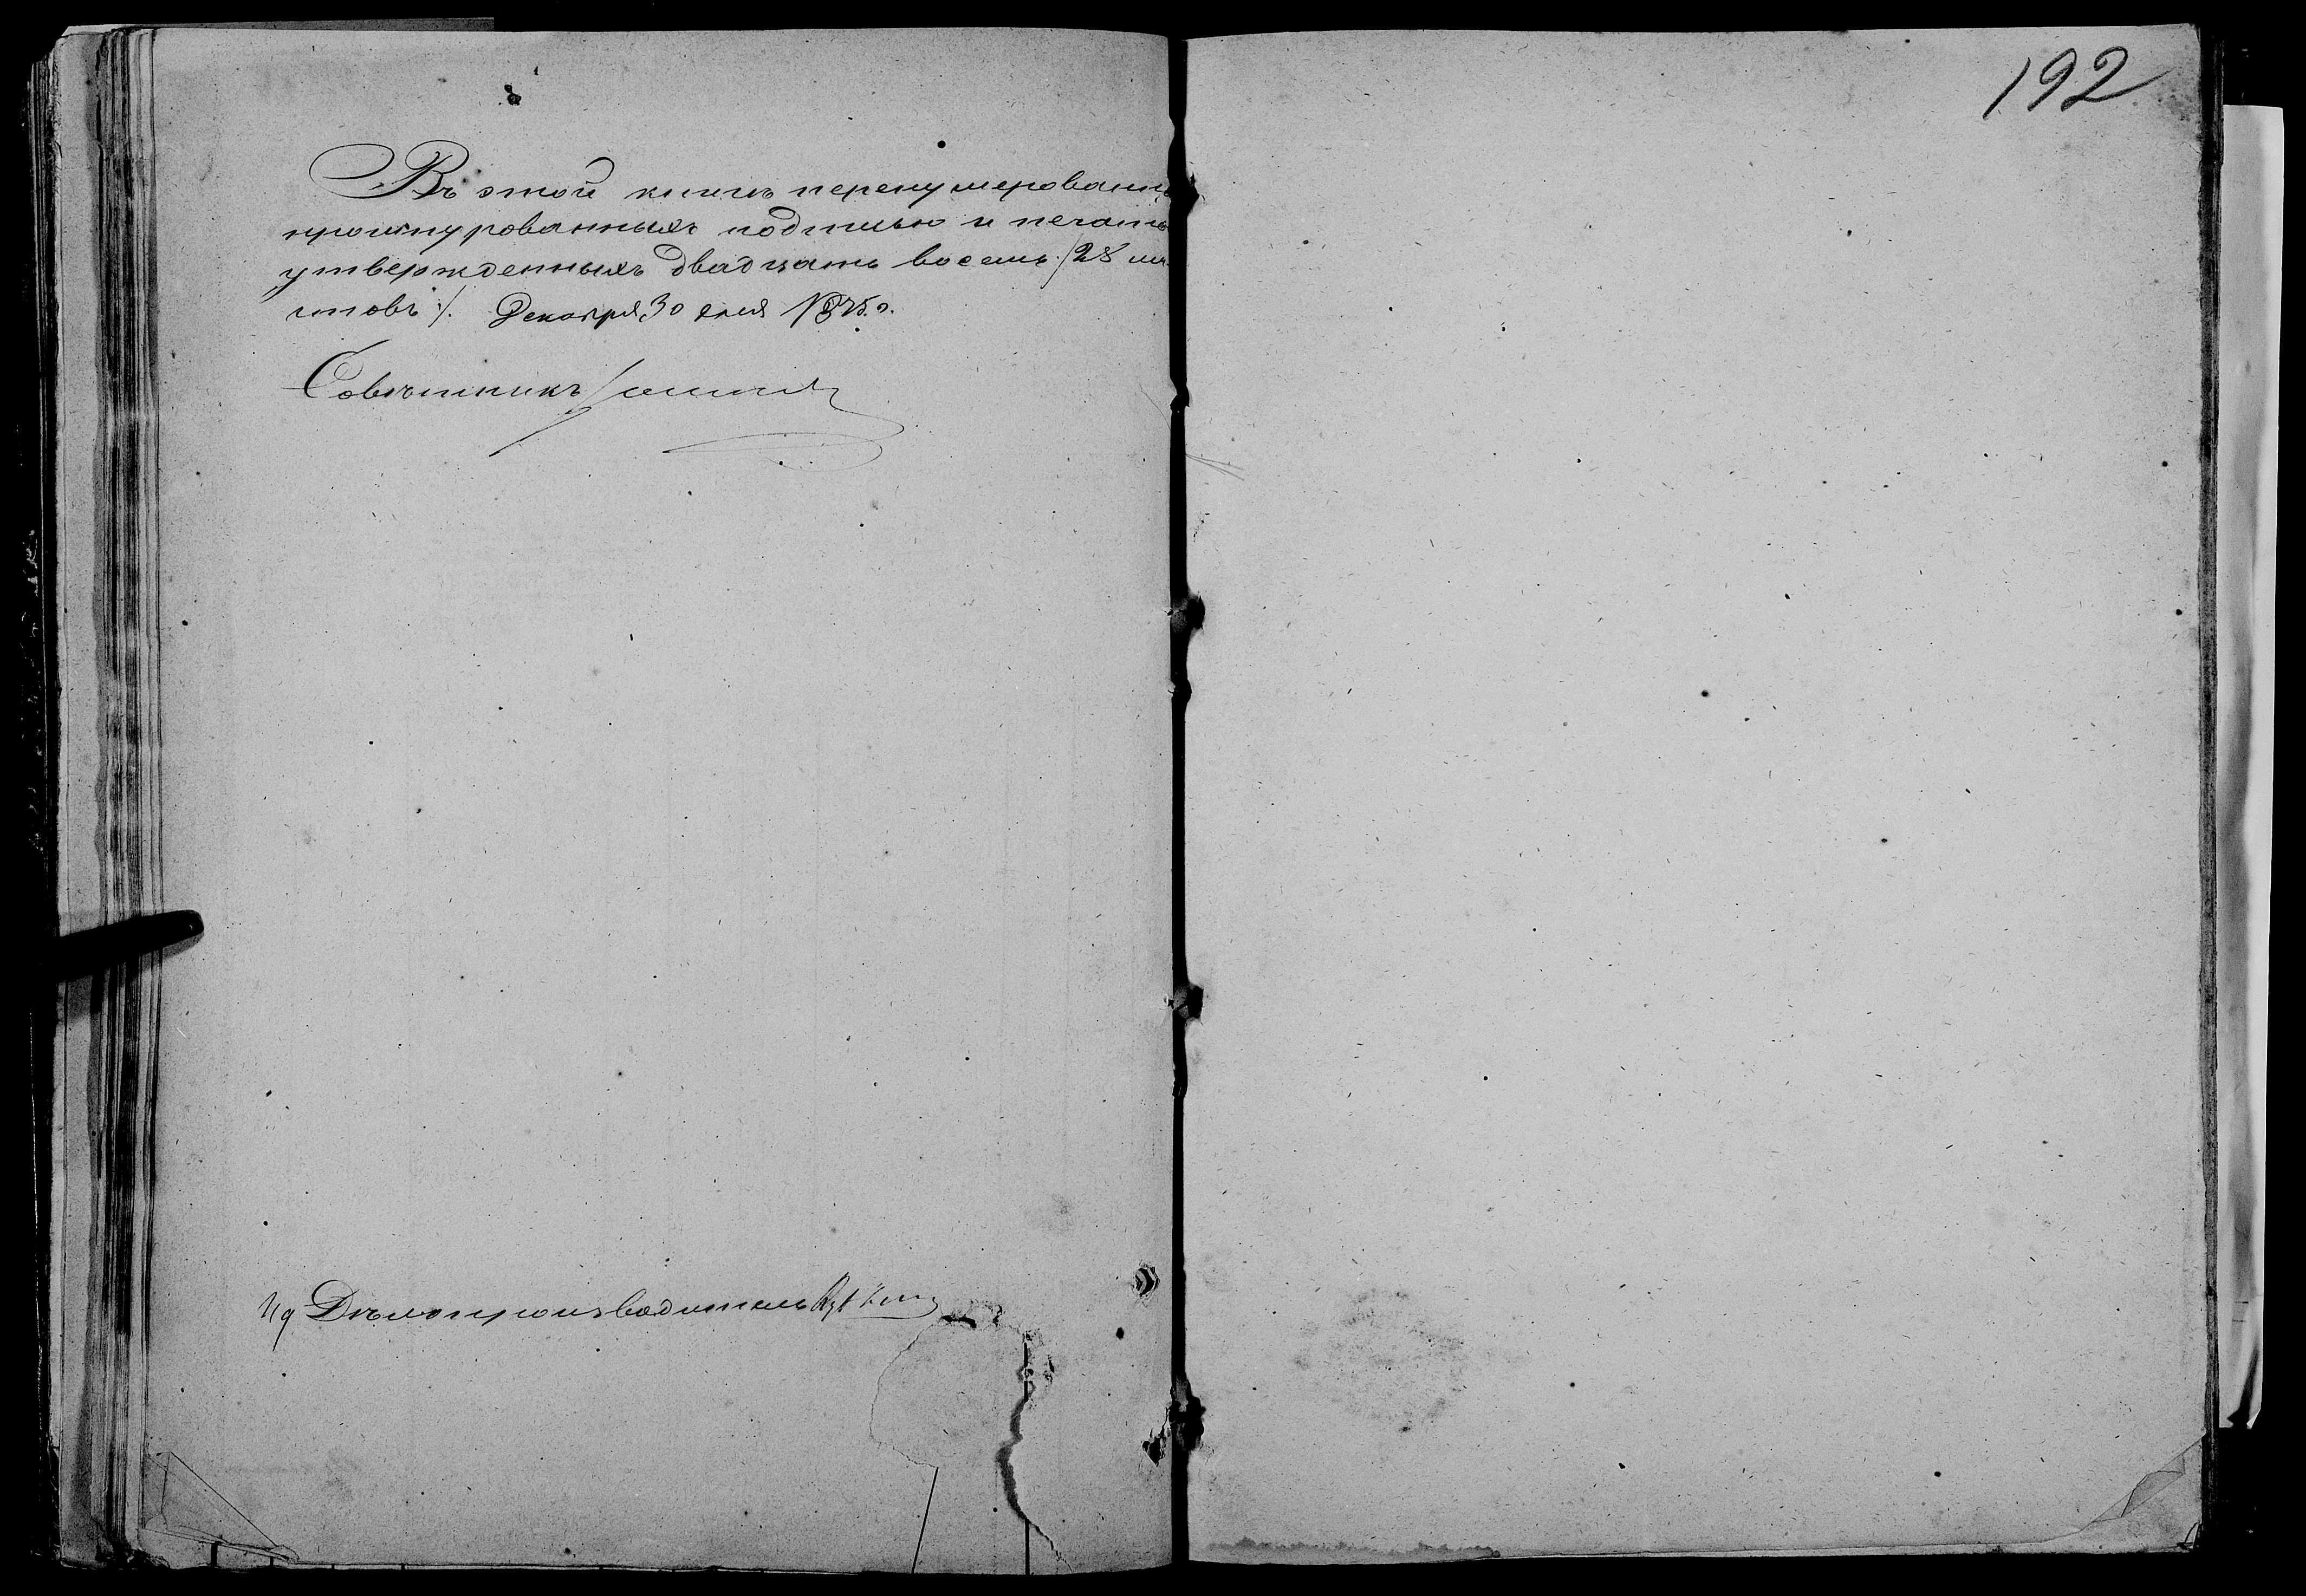 192
Въ этой книгѣ перенумерованн
прошнурованныхъ подписью и печать
утвержденныхъ двадцать восемь /28 ли
стовъ /. Декабря 30 дня 1875 г.
Совѣтникъ
И д Дѣлопроизводитель